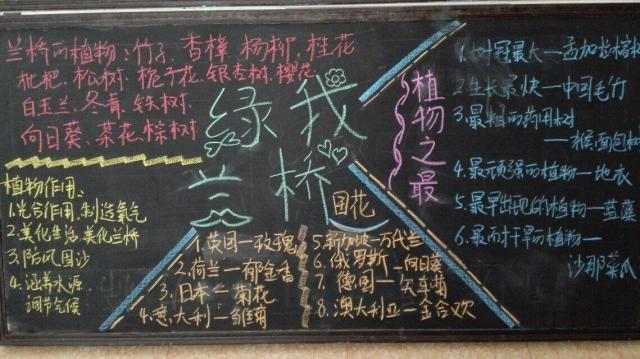 兰桥的植物：竹子、香樟、杨树、桂花
枇杷、松树、栀子花、银杏树、樱花、
白玉兰、冬青、铁树、
向日葵、菜花、棕树
绿我
兰桥
植物作用：
1.光合作用，制造氧气
2.美化生活，美化兰桥
3.防风固沙
4.涵养水源，
调节气候
国花
1.英国—玫瑰
2.荷兰—郁金香
3.日本—菊花
4.意大利—雏菊
5.新加坡—万代兰
6.俄罗斯—向日葵
7.德国—矢车菊
8.澳大利亚—金合欢
植物之最
1.树冠最大—孟加拉榕树
2.生长最快—中国毛竹
3.最粗的药用树
—猴面包树
4.最顽强的植物—地衣
5.最早出现的植物—蓝藻
6.最耐干旱的植物—
沙那菜瓜